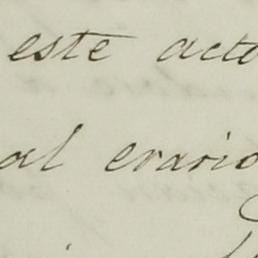 este acto
al erario